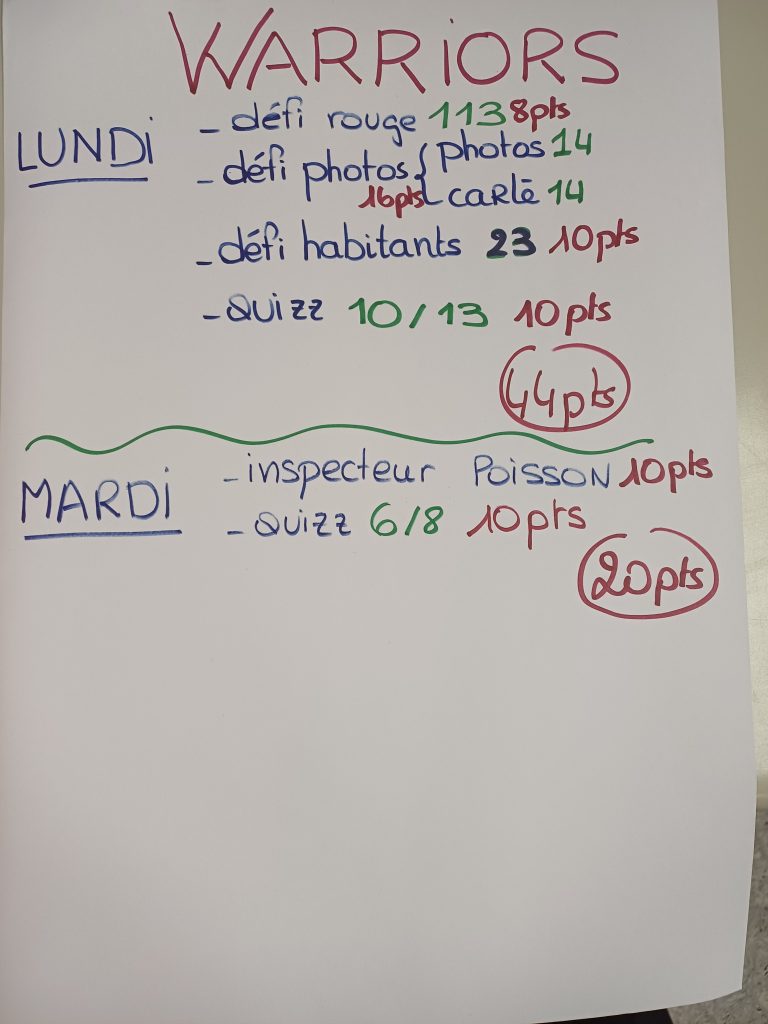 WARRiORS
LUNDi
- défi rouge 113 8pts
- défi photos { photos 14
16pts carte 14
- défi habitants 23 10pts
- Quizz 10/13 10pts
44pts
MARDi
- inspecteur POISSON 10pts
- Quizz 6/8 10pts
20pts